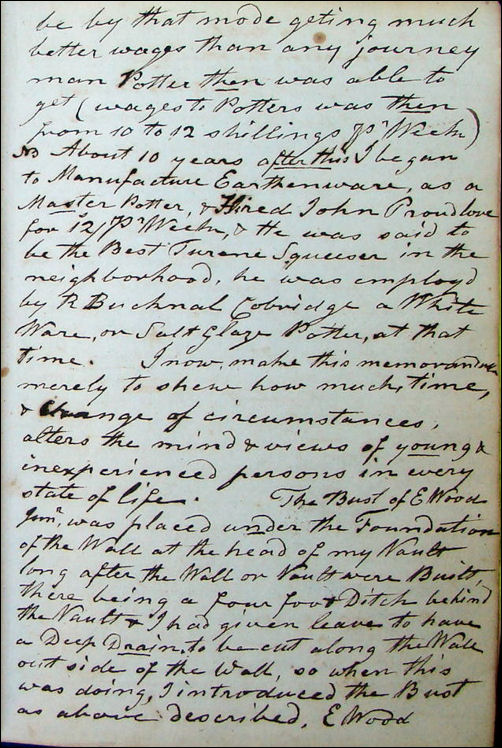 be by that mode geting much
better wages than any journey
man Potter then was able to
get (wages to Potters was then
from 10 to 12 shillings Pr Week)
NB About 10 years after this I began
to Manufacture Earthenware, as a
Master Potter, & Hired John Proudlove
for 12/ Pr Week, & He was said to
be the Best Turene Squeeser in the
neighborhood, he was employd
by R Bucknal Cobridge a White
Ware, or Salt Glaze Potter, at that
time. I now, make this memorandum
merely to shew how much, time,
& Change of circumstances,
alters the mind & views of young &
inexperienced persons in every
state of life. The Bust of E Wood
Junr, was placed under the Foundation
of the Wall at the head of my Vault
long after the Wall or Vault were Built,
there being a four foot Ditch behind
the Vault & I had given leave to have
a Deep Drain, to be cut along the Wall
out side of the Wall, so when this
was doing, I introduced the Bust
as above described, E Wood